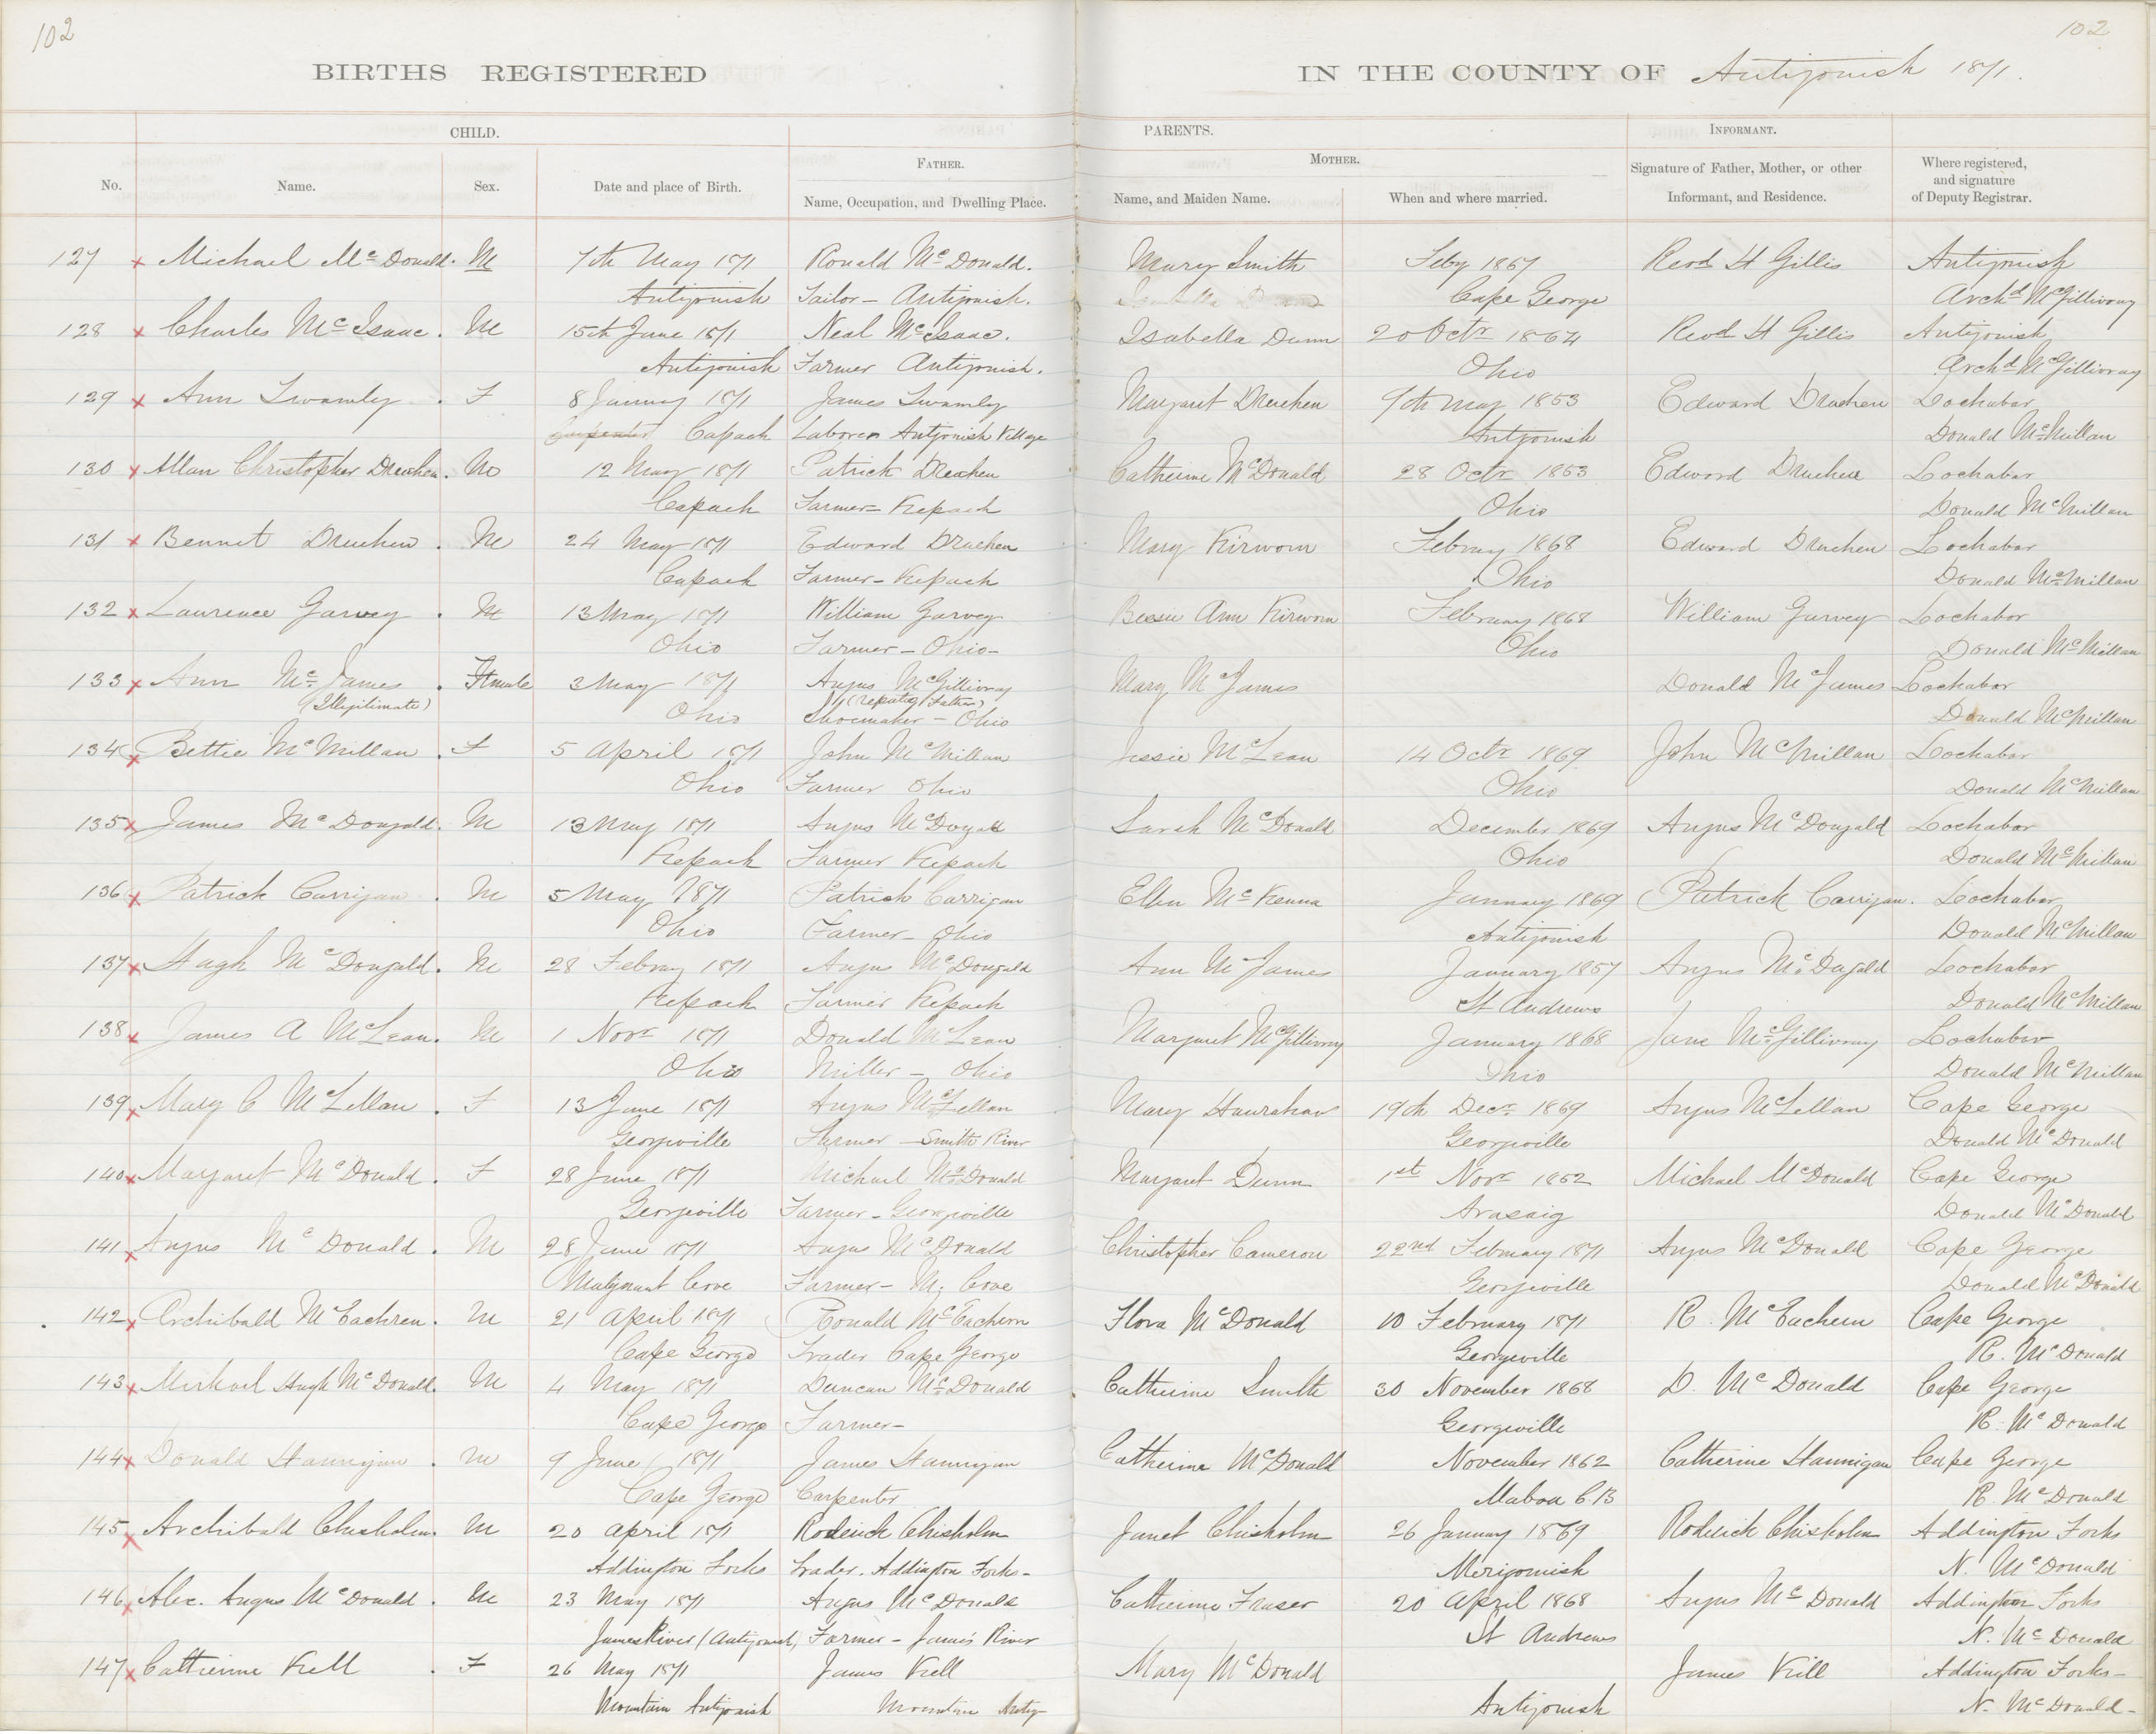 102
102
BIRTHS REGISTERED IN THE COUNTY OF Antigonish 1871.
CHILD. PARENTS. INFORMANT.
No. Name. Sex. Date and place of Birth. FATHER. Name, Occupation, and Dwelling Place. MOTHER. Name, and Maiden Name. When and where married. Signature of Father, Mother, or other Informant, and Residence. Where registered, and signature of Deputy Registrar.
127 x Michael McDonald. M 7th May 1871 Ronald McDonald. Mary Smith Feby 1867 Revd H Gillis Antigonish
Antigonish Tailor - Antigonish. Isabella Cape George Archd McGillivray
128 x Charles McIsaac. M 15th June 1871 Neal McIsaac. Isabella Dunn 20 Octr 1864 Revd H Gillis Antigonish
Antigonish Farmer Antigonish. Ohio Archd McGillivray
129 x Ann Swamly. F 8 January 1871 James Swamly Margaret Druhen 9th May 1853 Edward Druhen Lochabar
Carpenter Capach Laborer Antigonish Village Antigonish Donald McMillan
130 x Allan Christopher Druhen. M 12 May 1871 Patrick Druhen Catherine McDonald 28 Octr 1853 Edward Druhen Lochabar
Capach Farmer - Kepach Ohio Donald McMillan
131 x Bennet Druhen. M 24 May 1871 Edward Druhen Mary Kirwom Febury 1868 Edward Druhen Lochabar
Capach Farmer - Kepach Ohio Donald McMillan
132 x Laurence Garvey. M 13 May 1871 William Garvey Bessie Ann Kirwom February 1868 William Garvey Lochabor
Ohio Farmer - Ohio - Ohio Donald McMillan
133 x Ann McJames. Female 3 May 1871 Angus McGillivray Mary McJames Donald McJames Lochabar
(Illegitimate) Ohio (reputed Father)
Shoemaker - Ohio Donald McMillan
134 x Bettie McMillan. F 5 April 1871 John McMillan Jessie McLean 14 Octr 1869 John McMillan Lochabar
Ohio Farmer Ohio Ohio Donald McMillan
135 x James McDougald. M 13 May 1871 Angus McDougald Sarah McDonald December 1869 Angus McDougald Lochabar
Kepach Farmer Kepach Ohio Donald McMillan
136 x Patrick Carrigan. M 5 May 1871 Patrick Carrigan Ellen McKenna January 1869 Patrick Carrigan. Lochabar
Ohio Farmer - Ohio Antigonish Donald McMillan
137 x Hugh McDougald. M 28 Febury 1871 Angus McDougald Ann McJames January 1857 Angus McDugald Lochabar
Kepach Farmer Kepach St Andrews Donald McMillan
138 x James A McLean. M 1 Novr 1871 Donald McLean Margaret McGillivray January 1868 Jane McGillivray Lochabar
Ohio Miller - Ohio Ohio Donald McMillan
139 x Mary C McLellan. F 13 June 1871 Angus McLellan Mary Hanrahan 19th Decr 1869 Angus McLellan Cape George
Georgeville Farmer - Smith River Georgeville Donald McDonald
140 x Margaret McDonald. F 28 June 1871 Michael McDonald Margaret Dunn 1st Novr 1862 Michael McDonald Cape George
Georgeville Farmer - Georgeville Arasaig Donald McDonald
141 x Angus McDonald. M 28 June 1871 Angus McDonald Christopher Cameron 22nd February 1871 Angus McDonald Cape George
Malignant Cove Farmer - M. Cove Georgeville Donald McDonald
142 x Archibald McEachren. M 21 April 1871 Ronald McEachern Flora McDonald 10 February 1871 R. McEachern Cape George
Cape George Trader Cape George Georgeville R. McDonald
143 x Michael Hugh McDonald. M 4 May 1871 Duncan McDonald Catherine Smith 30 November 1868 D. McDonald Cape George
Cape George Farmer - Georgeville R. McDonald
144 x Donald Hannigan. M 9 June 1871 James Hannigan Catherine McDonald November 1862 Catherine Hannigan Cape George
Cape George Carpenter Mabou C.B R. McDonald
145 x Archibald Chisholm. M 20 April 1871 Roderick Chisholm Janet Chisholm 26 January 1869 Roderick Chisholm Addington Forks
Addington Forks Trader. Addington Forks - Merigomish N. McDonald
146 x Alex. Angus McDonald. M 23 May 1871 Angus McDonald Catherine Fraser 20 April 1868 Angus McDonald Addington Forks
James River (Antigonish) Farmer - James River St Andrews N. McDonald
147 x Catherine Kell. F 26 May 1871 James Kell Mary McDonald James Kell Addington Forks -
Mountain Antigonish Mountain Antig- Antigonish N. McDonald -